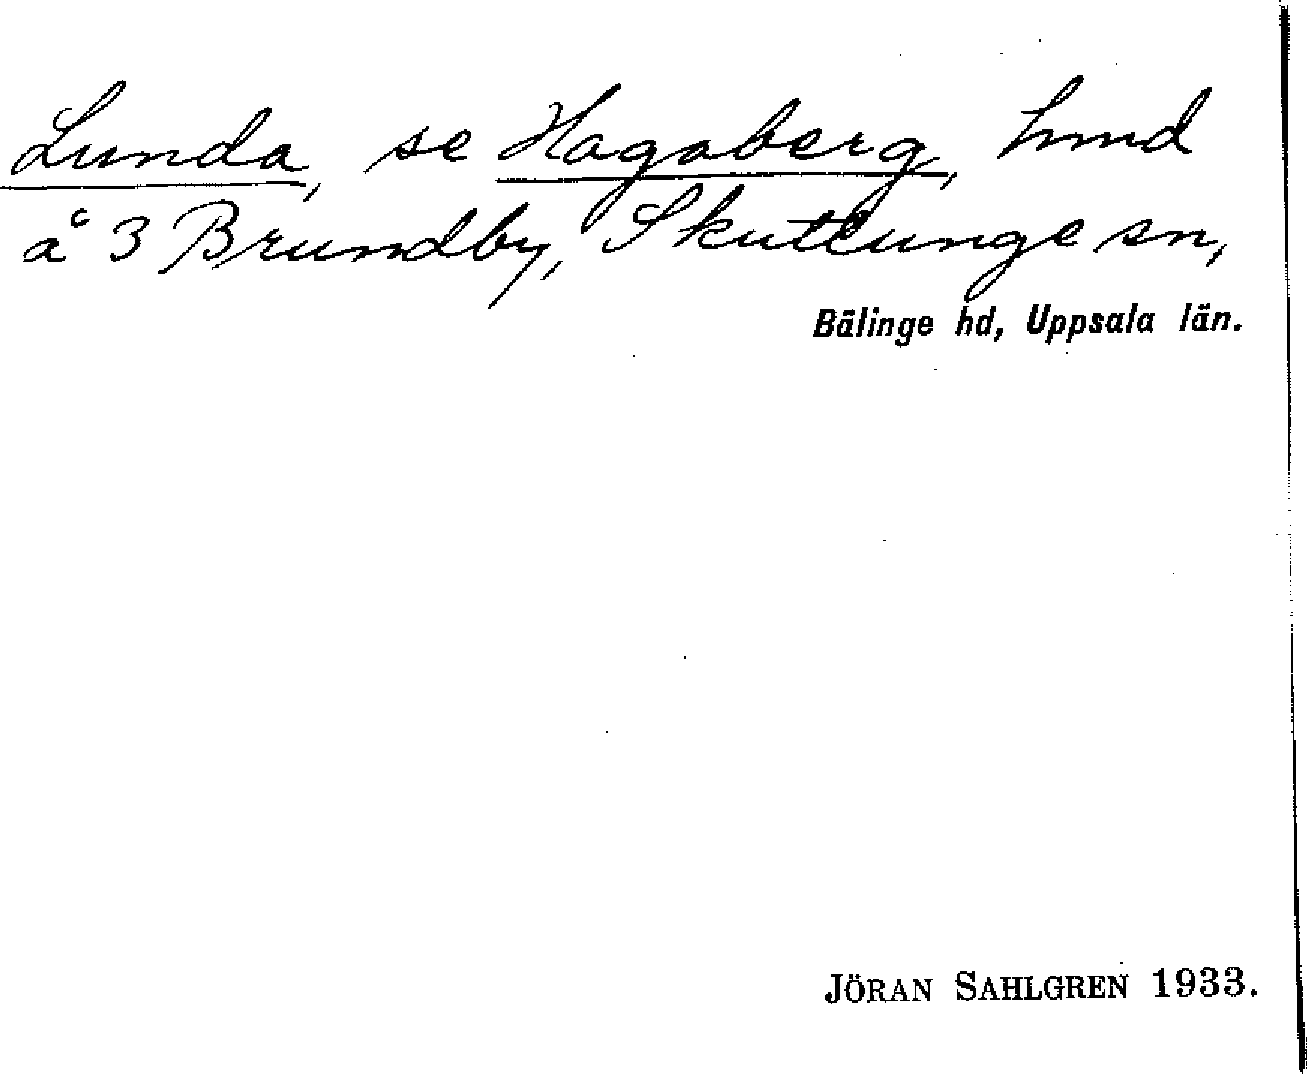 Lunda, se Hagaberg, hmd
å 3 Brundby, Skuttunge sn,
Bälinge hd, Uppsala län.
JÖRAN SAHLGREN 1933.